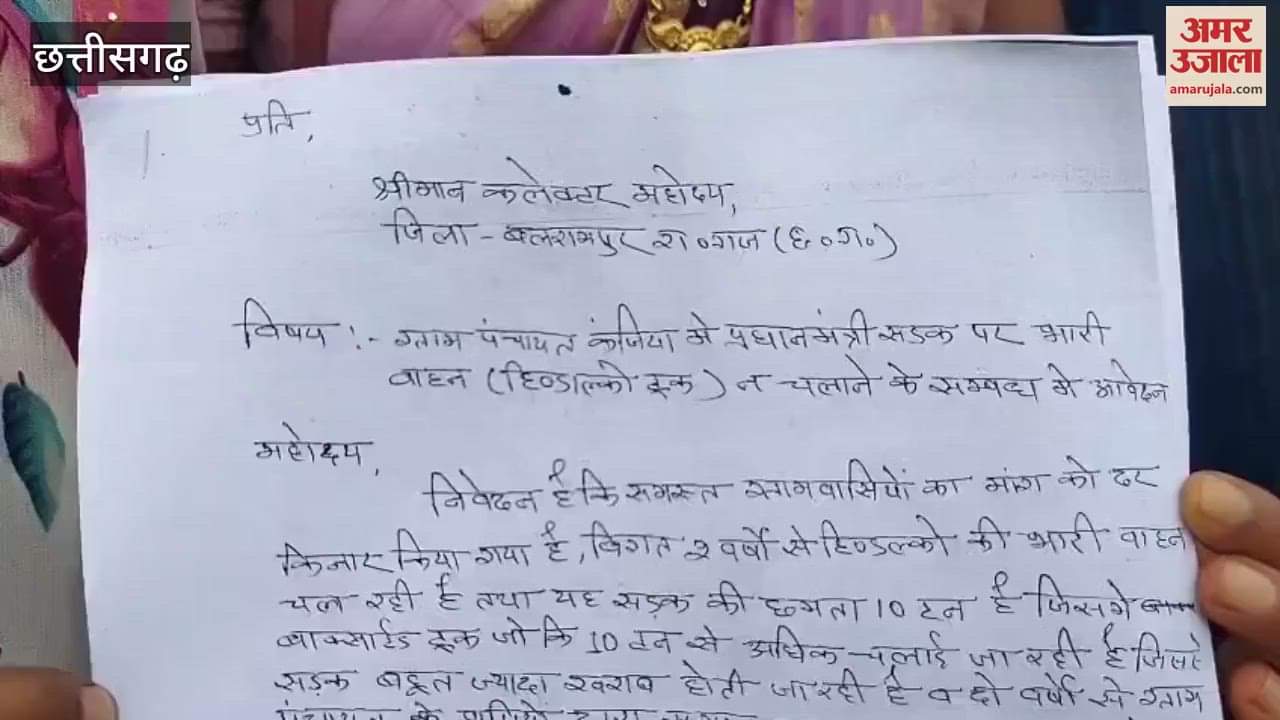 छत्तीसगढ़
अमर
उजाला
amarujala.com
प्रति,
श्रीमान कलेक्टर महोदय,
जिला - बलरामपुर रा०गंज (छ०ग०)
विषय :- ग्राम पंचायत कंजिया मे प्रधानमंत्री सड़क पर भारी
वाहन (हिण्डाल्को ट्रक) न चलाने के सम्बन्ध मे आवेदन
महोदय,
निवेदन है कि समस्त ग्रामवासियों का मांग को दर
किनार किया गया है, विगत 2 वर्षो से हिण्डाल्को की भारी वाहन
चल रही है तथा यह सड़क की छमता 10 टन है जिसमे
बाक्साईड ट्रक जो कि 10 टन से अधिक चलाई जा रही है जिससे
सड़क बहुत ज्यादा खराब होती जा रही है व दो वर्षो से ग्राम
पंचायत के